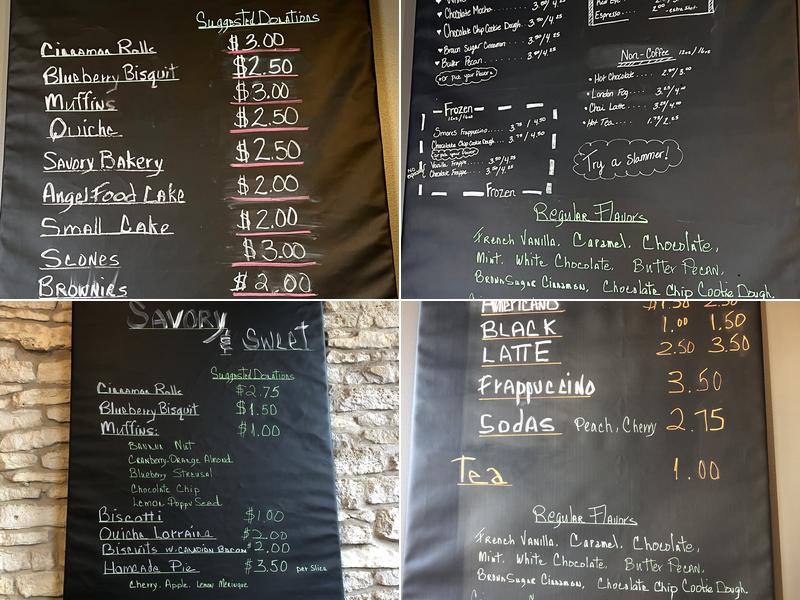 Suggested Donations
Cinnamon Rolls $3.00
Blueberry Bisquit $2.50
Muffins $3.00
Quiche $2.50
Savory Bakery $2.50
Angel Food Cake $2.00
Small Cake $2.00
Scones $3.00
Brownies $2.00
Chocolate Mocha
Chocolate Chip Cookie Dough
Brown Sugar Cinnamon 3.90/4.25
Butter Pecan 3.90/4.25
Or pick your flavor
Espresso
extra shot
Non-Coffee 12oz/16oz
Hot Chocolate
London Fog
Chai Latte
Hot Tea
Frozen
12oz/16oz
Smores Frappuccino
Chocolate Chip Cookie Dough
Or pick your flavor
Vanilla Frappe
Chocolate Frappe
Frozen
Try a Slammer!
Regular Flavors
French Vanilla, Caramel, Chocolate,
Mint, White Chocolate, Butter Pecan,
Brown Sugar Cinnamon, Chocolate Chip Cookie Dough,
Savory & Sweet
Suggested Donations
Cinnamon Rolls $2.75
Blueberry Bisquit $1.50
Muffins: $1.00
Banana Nut
Cranberry-Orange Almond
Blueberry Streusal
Chocolate Chip
Lemon Poppy Seed
Biscotti $1.00
Quiche Lorraine $2.00
Biscuits w. Canadian Bacon $2.00
Homeade Pie $3.50 per slice
Cherry, Apple, Lemon Meringue
Americano $1.50 2.50
Black 1.00 1.50
Latte 2.50 3.50
Frappuccino 3.50
Sodas Peach, Cherry 2.75
Tea 1.00
Regular Flavors
French Vanilla, Caramel, Chocolate,
Mint, White Chocolate, Butter Pecan,
Brown Sugar Cinnamon, Chocolate Chip Cookie Dough.